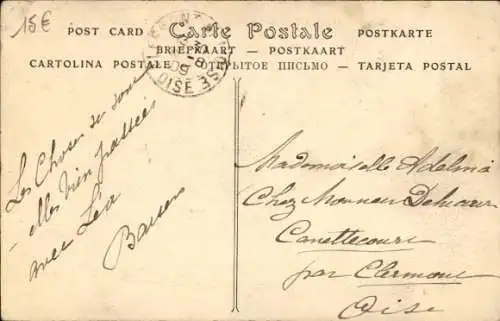 15€
POST CARD Carte Postale POSTKARTE
BRIEFKAART — POSTKAART
CARTOLINA POSTALE ОТКРЫТОЕ ПИСЬМО — TARJETA POSTAL
OISE
09
Les Choses se sont
elles bien passées
avec Léa
Mademoiselle Adelma
Chez Monsieur
Canettecourt
par Clermont
Oise